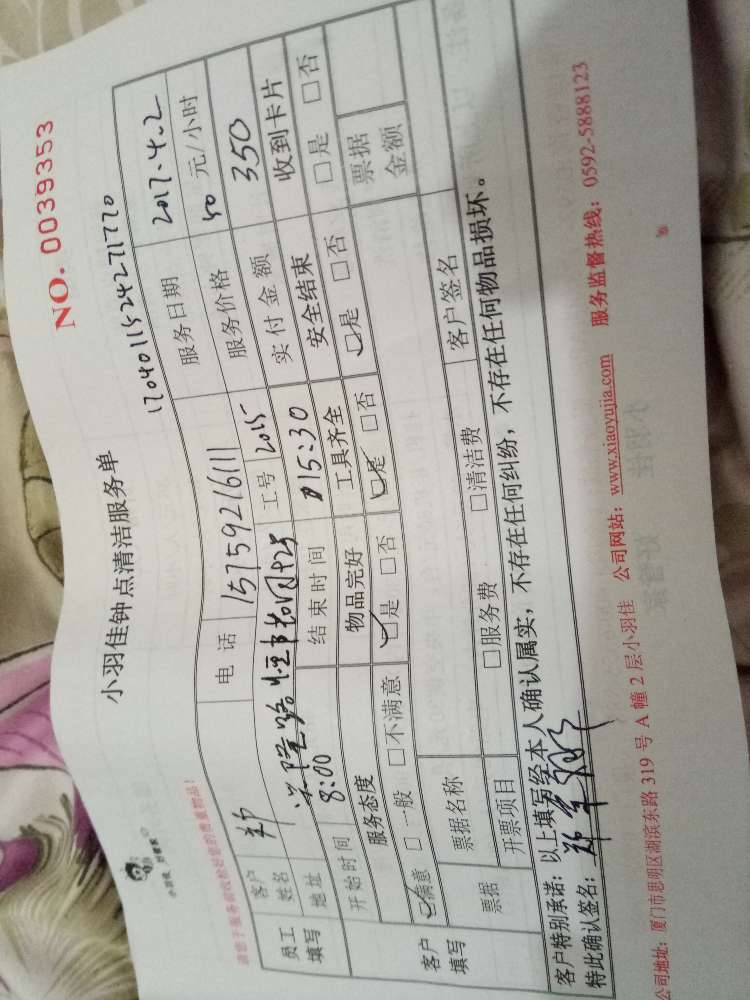 NO. 0039353
小羽佳钟点清洁服务单
1704011524271770
员工填写
客户姓名 郑 电话 15759216111 服务日期 2017.4.2
地址 工号 2015 服务价格 50 元/小时
开始时间 8:00 结束时间 15:30 实付金额 350
客户填写
服务态度 物品完好 工具齐全 安全结束 收到卡片
☑满意 □一般 □不满意 ☑是 □否 ☑是 □否 ☑是 □否 □是 □否
票据 票据名称 票据金额
开票项目 □服务费 □清洁费 客户签名
客户特别承诺：以上填写经本人确认属实，不存在任何纠纷，不存在任何物品损坏。
特此确认签名：
公司地址：厦门市思明区湖滨东路 319 号 A 幢 2 层小羽佳 公司网站：www.xiaoyujia.com 服务监督热线：0592-5888123